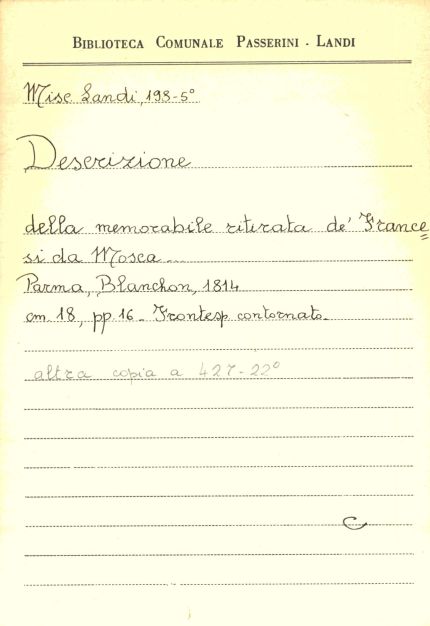 BIBLIOTECA COMUNALE PASSERINI - LANDI
Misc Landi, 198-5°
Descrizione
della memorabile ritirata de' France=
si da Mosca
Parma, Blanchon, 1814
cm 18, pp 16 - Frontesp contornato.
altra copia a 427-22°
C